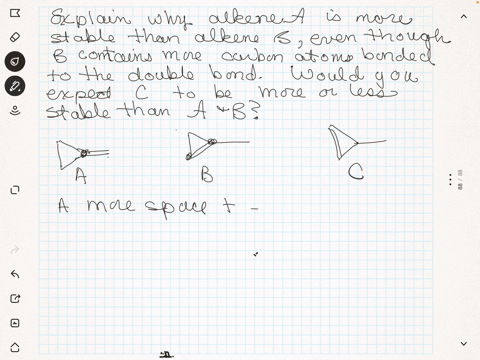 Explain why alkene A is more
stable than alkene B, even though
B contains more carbon atoms bonded
to the double bond. Would you
expect C to be more or less
stable than A + B?
A B C
A more space + -